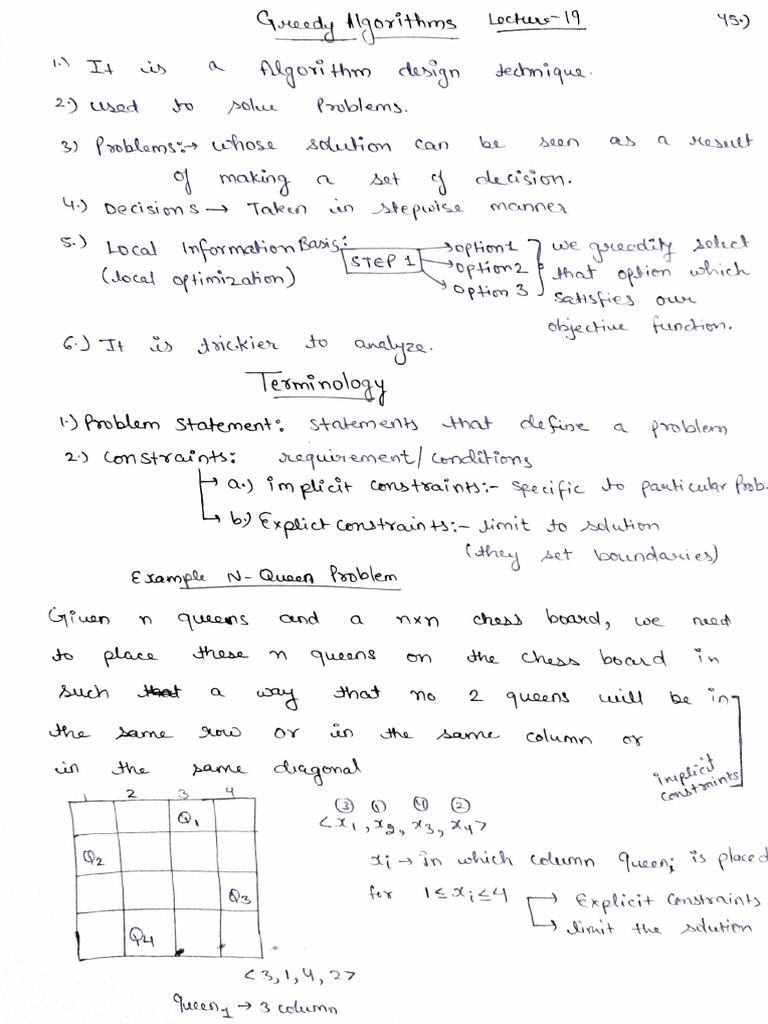 Greedy Algorithms Lecture-19 45.)
1.) It is a Algorithm design technique.
2.) used to solve Problems.
3) Problems:→ whose solution can be seen as a result
of making a set of decision.
4.) Decisions → Taken in stepwise manner
5.) Local Information Basis:
(local optimization)
STEP 1
option1
option2
option 3
we greedily select
that option which
satisfies our
objective function.
6.) It is trickier to analyze.
Terminology
1.) Problem Statement: statements that define a problem
2.) Constraints: requirement/conditions
a.) implicit constraints:- specific to particular Prob.
b.) Explict constraints:- limit to solution
(they set boundaries)
Example N-Queen Problem
Given n queens and a n×n chess board, we need
to place these n queens on the chess board in
such that a way that no 2 queens will be in
the same row or in the same column or
in the same diagonal
implicit
constraints
1 2 3 4
Q1
Q2
Q3
Q4
③ ① ④ ②
<x1, x2, x3, x4>
xi → in which column Queeni is placed
for 1≤xi≤4 → Explicit Constraints
→ limit the solution
<3,1,4,2>
Queen1 → 3 column